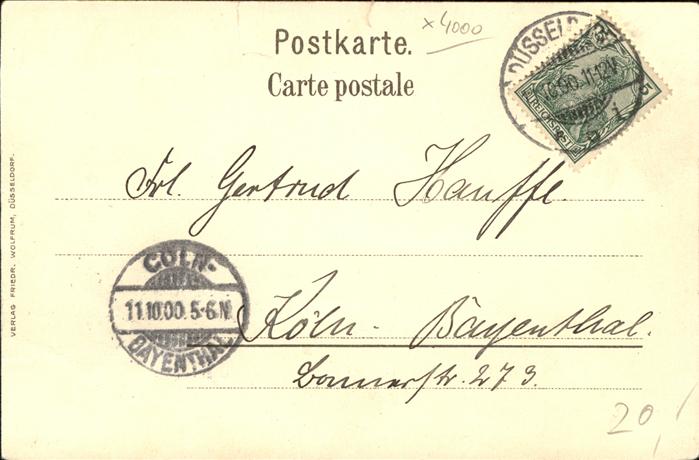 Postkarte.
x 4000
Carte postale
DÜSSELD
10.00.11-12V.
1
5
REICHSPOST
Frl. Gertrud Hauffe.
CÖLN-
11.10.00.5-6.N
BAYENTHAL
Köln - Bayenthal.
Bonnerstr. 273.
20,
VERLAG FRIEDR. WOLFRUM, DÜSSELDORF.